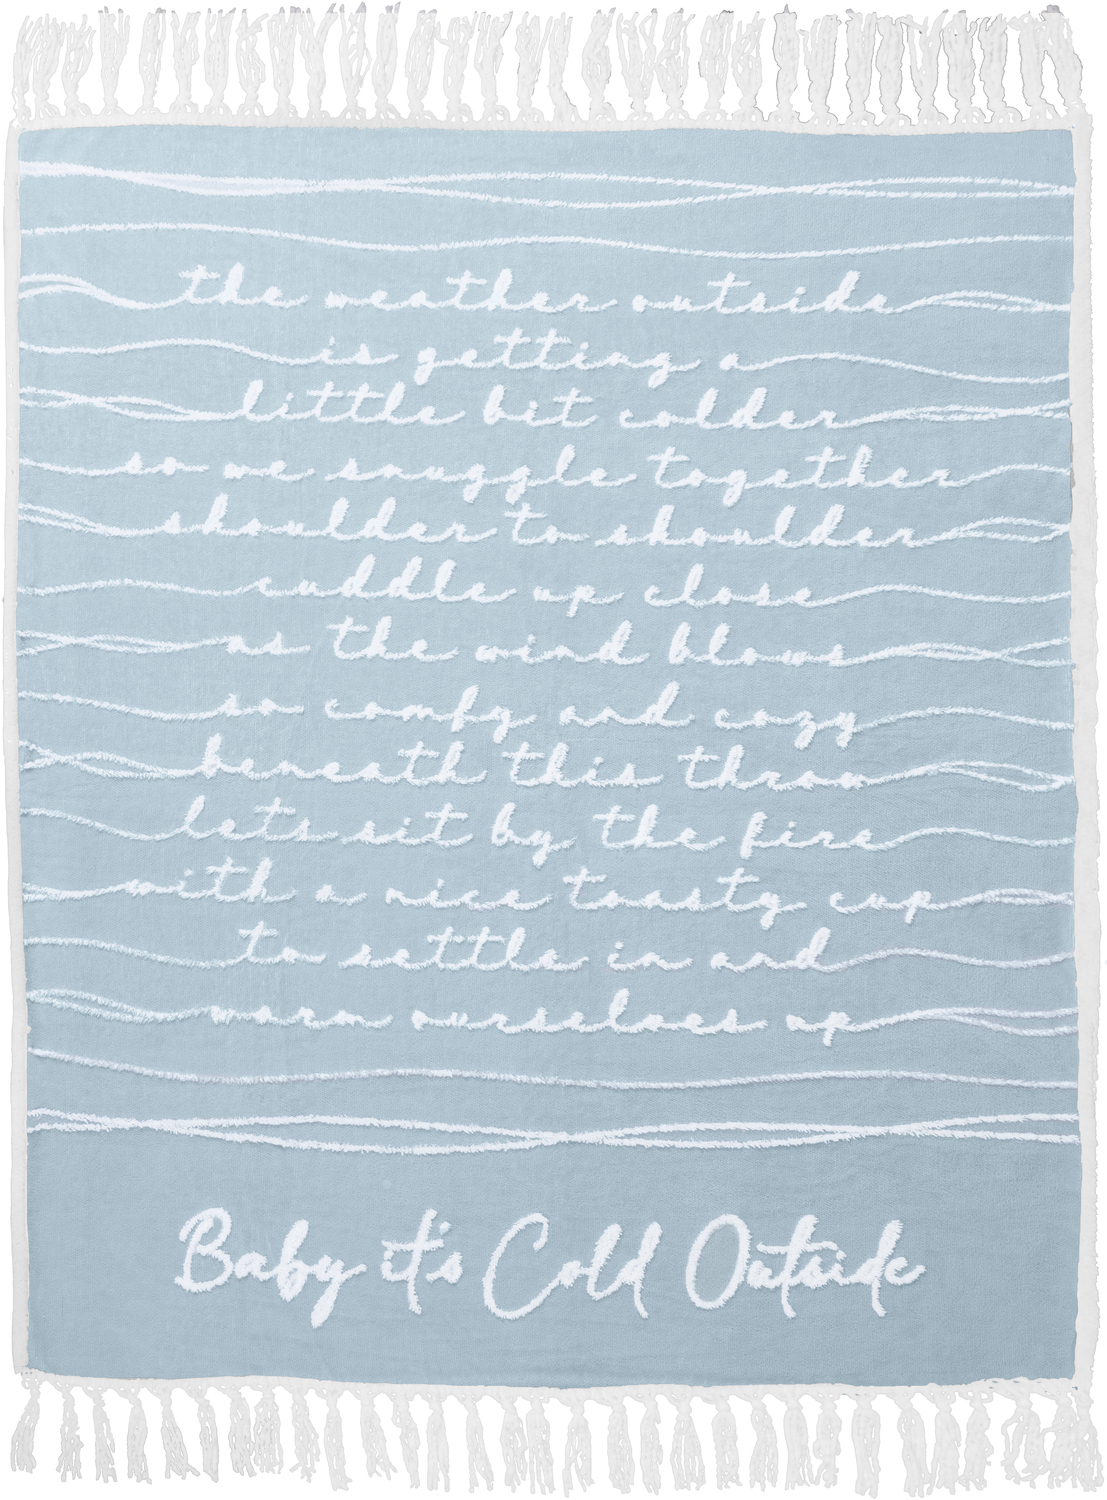 the weather outside
is getting a
little bit colder
so we snuggle together
shoulder to shoulder
cuddle up close
as the wind blows
so comfy and cozy
beneath this throw
lets sit by the fire
with a nice toasty cup
to settle in and
warm ourselves up
Baby it's Cold Outside